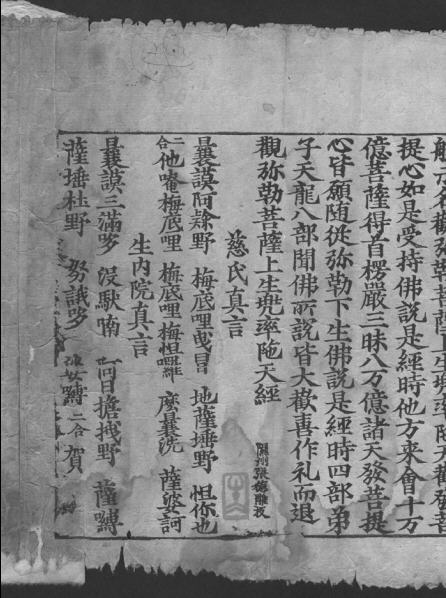 般...名觀弥勒菩薩上生兜率陁天觀發菩
提心如是受持佛說是經時他方來會十万
億菩薩得首楞嚴三昧八万億諸天發菩提
心皆願随從弥勒下生佛說是經時四部弟
子天龍八部聞佛所說皆大歡喜作礼而退
觀弥勒菩薩上生兜率陁天經
慈氏真言
曩謨阿 野 梅底哩曵冒 地薩埵野 怛你也
二合他唵梅底哩 梅底哩梅怛囉 麼曩洗 薩婆訶
生内院真言
曩謨三滿哆 沒馱喃 阿 擔 野 薩嚩
薩埵 野 努誐哆 嚩二合賀